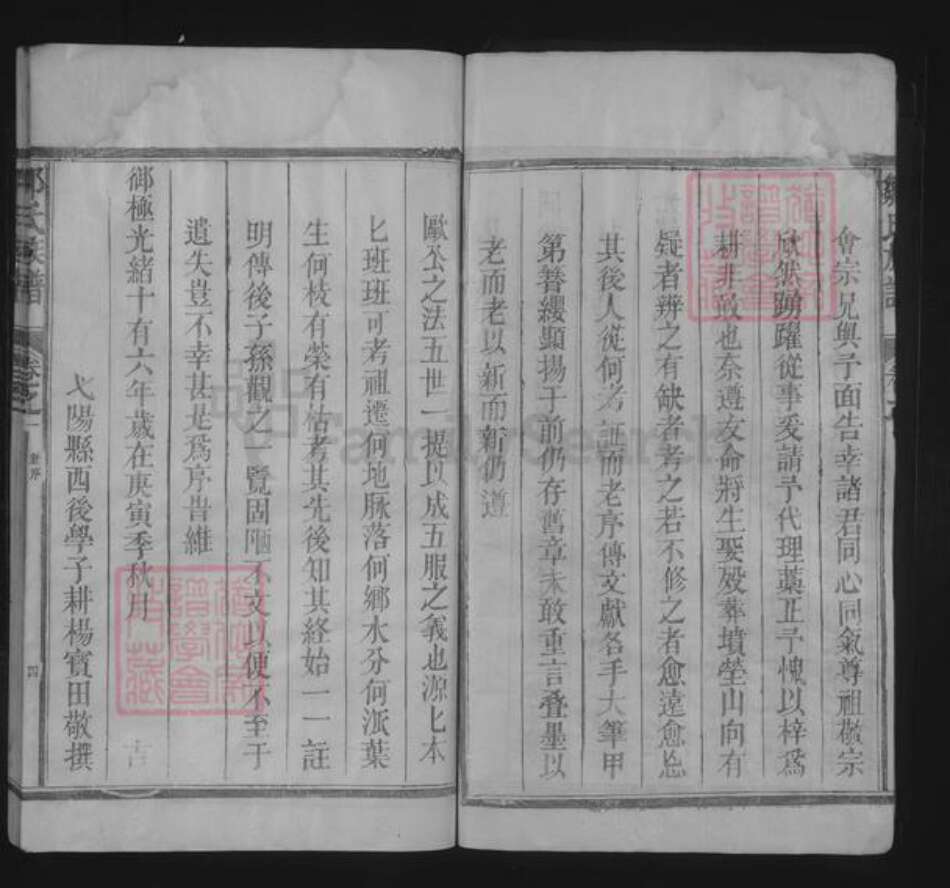 會宗兄與予面告幸諸君同心同氣尊祖敬宗
欣然踴躍從事爰請予代理藁正予愧以梓爲
耕非敢也奈遵友命將生娶殁葬墳塋山向有
疑者辨之有缺者考之若不修之者愈遠愈忘
其後人從何考証而老序傳文獻各手大筆甲
第簪纓顯揚于前仍存舊章未敢重言叠墨以
老而老以新而新仍遵
歐公之法五世一提以成五服之義也源匕本
匕班班可考祖遷何地脉落何鄉水分何派葉
生何枝有榮有枯考其先後知其終始一一註
明傳後子孫觀之一覽固陋不文以便不至于
遺失豈不幸甚是爲序旹維
御極光緒十有六年歲在庚寅季秋月 吉
弋陽縣西後學子耕楊寳田敬撰
鄒氏族譜
卷之一
四
FamilySearch